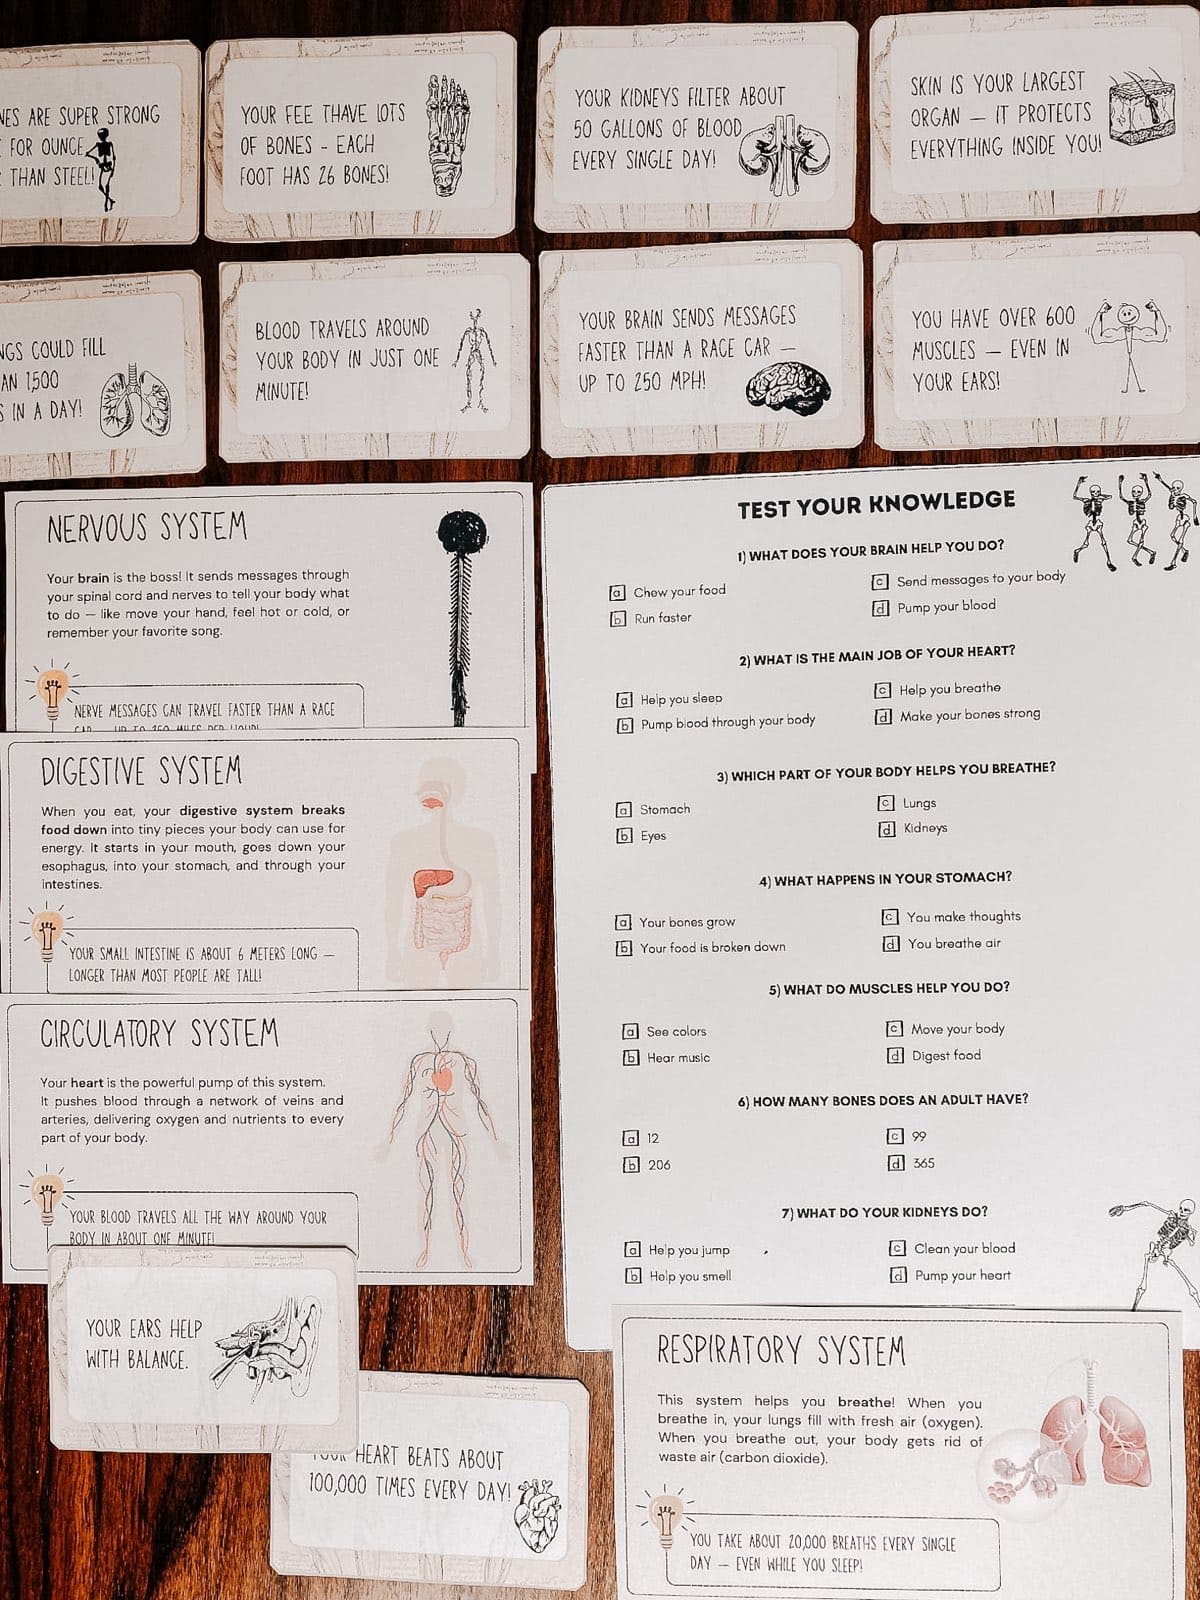 NES ARE SUPER STRONG
FOR OUNCE,
THAN STEEL!
YOUR FEE THAVE LOTS
OF BONES - EACH
FOOT HAS 26 BONES!
YOUR KIDNEYS FILTER ABOUT
50 GALLONS OF BLOOD
EVERY SINGLE DAY!
SKIN IS YOUR LARGEST
ORGAN — IT PROTECTS
EVERYTHING INSIDE YOU!
NGS COULD FILL
AN 1,500
S IN A DAY!
BLOOD TRAVELS AROUND
YOUR BODY IN JUST ONE
MINUTE!
YOUR BRAIN SENDS MESSAGES
FASTER THAN A RACE CAR —
UP TO 250 MPH!
YOU HAVE OVER 600
MUSCLES — EVEN IN
YOUR EARS!
NERVOUS SYSTEM
Your brain is the boss! It sends messages through
your spinal cord and nerves to tell your body what
to do — like move your hand, feel hot or cold, or
remember your favorite song.
NERVE MESSAGES CAN TRAVEL FASTER THAN A RACE
CAR — UP TO 250 MILES PER HOUR!
DIGESTIVE SYSTEM
When you eat, your digestive system breaks
food down into tiny pieces your body can use for
energy. It starts in your mouth, goes down your
esophagus, into your stomach, and through your
intestines.
YOUR SMALL INTESTINE IS ABOUT 6 METERS LONG —
LONGER THAN MOST PEOPLE ARE TALL!
CIRCULATORY SYSTEM
Your heart is the powerful pump of this system.
It pushes blood through a network of veins and
arteries, delivering oxygen and nutrients to every
part of your body.
YOUR BLOOD TRAVELS ALL THE WAY AROUND YOUR
BODY IN ABOUT ONE MINUTE!
YOUR EARS HELP
WITH BALANCE.
YOUR HEART BEATS ABOUT
100,000 TIMES EVERY DAY!
TEST YOUR KNOWLEDGE
1) WHAT DOES YOUR BRAIN HELP YOU DO?
a Chew your food
b Run faster
c Send messages to your body
d Pump your blood
2) WHAT IS THE MAIN JOB OF YOUR HEART?
a Help you sleep
b Pump blood through your body
c Help you breathe
d Make your bones strong
3) WHICH PART OF YOUR BODY HELPS YOU BREATHE?
a Stomach
b Eyes
c Lungs
d Kidneys
4) WHAT HAPPENS IN YOUR STOMACH?
a Your bones grow
b Your food is broken down
c You make thoughts
d You breathe air
5) WHAT DO MUSCLES HELP YOU DO?
a See colors
b Hear music
c Move your body
d Digest food
6) HOW MANY BONES DOES AN ADULT HAVE?
a 12
b 206
c 99
d 365
7) WHAT DO YOUR KIDNEYS DO?
a Help you jump
b Help you smell
c Clean your blood
d Pump your heart
RESPIRATORY SYSTEM
This system helps you breathe! When you
breathe in, your lungs fill with fresh air (oxygen).
When you breathe out, your body gets rid of
waste air (carbon dioxide).
YOU TAKE ABOUT 20,000 BREATHS EVERY SINGLE
DAY — EVEN WHILE YOU SLEEP!